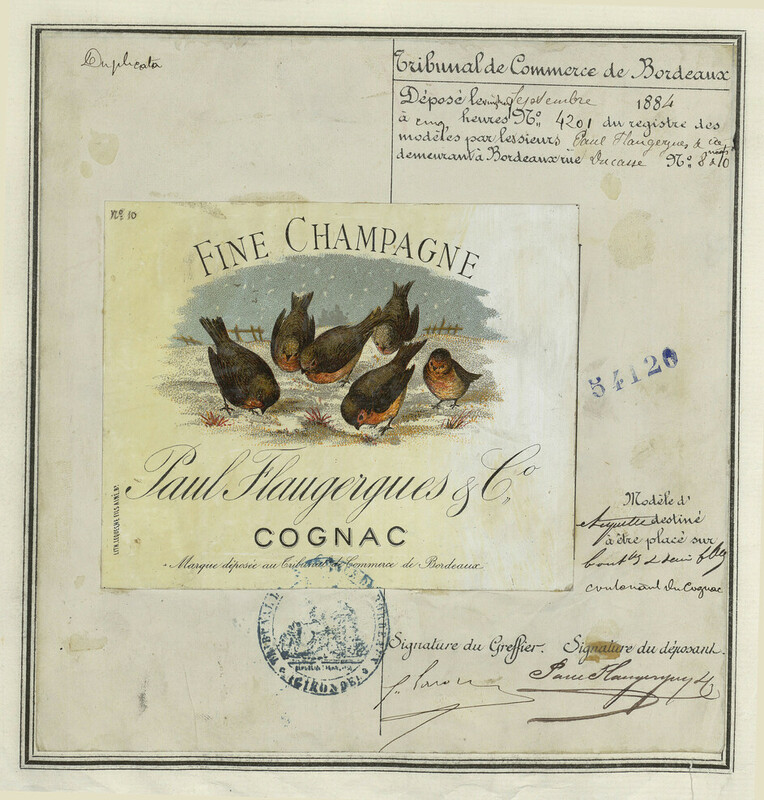 Duplicata
Tribunal de Commerce de Bordeaux
Déposé le Septembre 1884
à cinq heures Nº 4201 du registre des
modèles par les sieurs Paul Flaugergues & Cie
demeurant à Bordeaux rue Ducasse Nº 8 & 10
Nº 10
FINE CHAMPAGNE
54120
Paul Flaugergues & Cº
COGNAC
Marque déposée au Tribunal de Commerce de Bordeaux
Modèle d'
étiquette destiné
à être placé sur
contenant du Cognac
GIRONDE
Signature du Greffier. Signature du déposant.
Paul Flaugergues & Cie